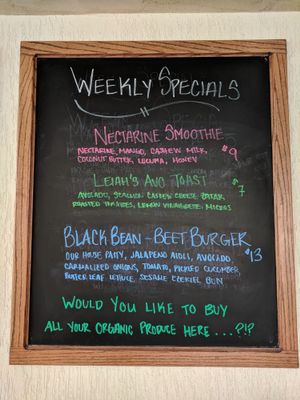 WEEKLY SPECIALS
NECTARINE SMOOTHIE
NECTARINE, MANGO, CASHEW MILK, $9
COCONUT BUTTER, LUCUMA, HONEY
LEIAH'S AVO TOAST
AVOCADO, SCALLION CASHEW CHEESE, $7
ROASTED TOMATOES, LEMON VINAIGRETTE, MICROS
BLACK BEAN-BEET BURGER
OUR HOUSE PATTY, JALAPENO AIOLI, AVOCADO, $13
CARAMALIZED ONIONS, TOMATO, PICKLED CUCUMBER,
BUTTER LEAF LETTUCE, SESAME EZEKIEL BUN
WOULD YOU LIKE TO BUY
ALL YOUR ORGANIC PRODUCE HERE...?!?